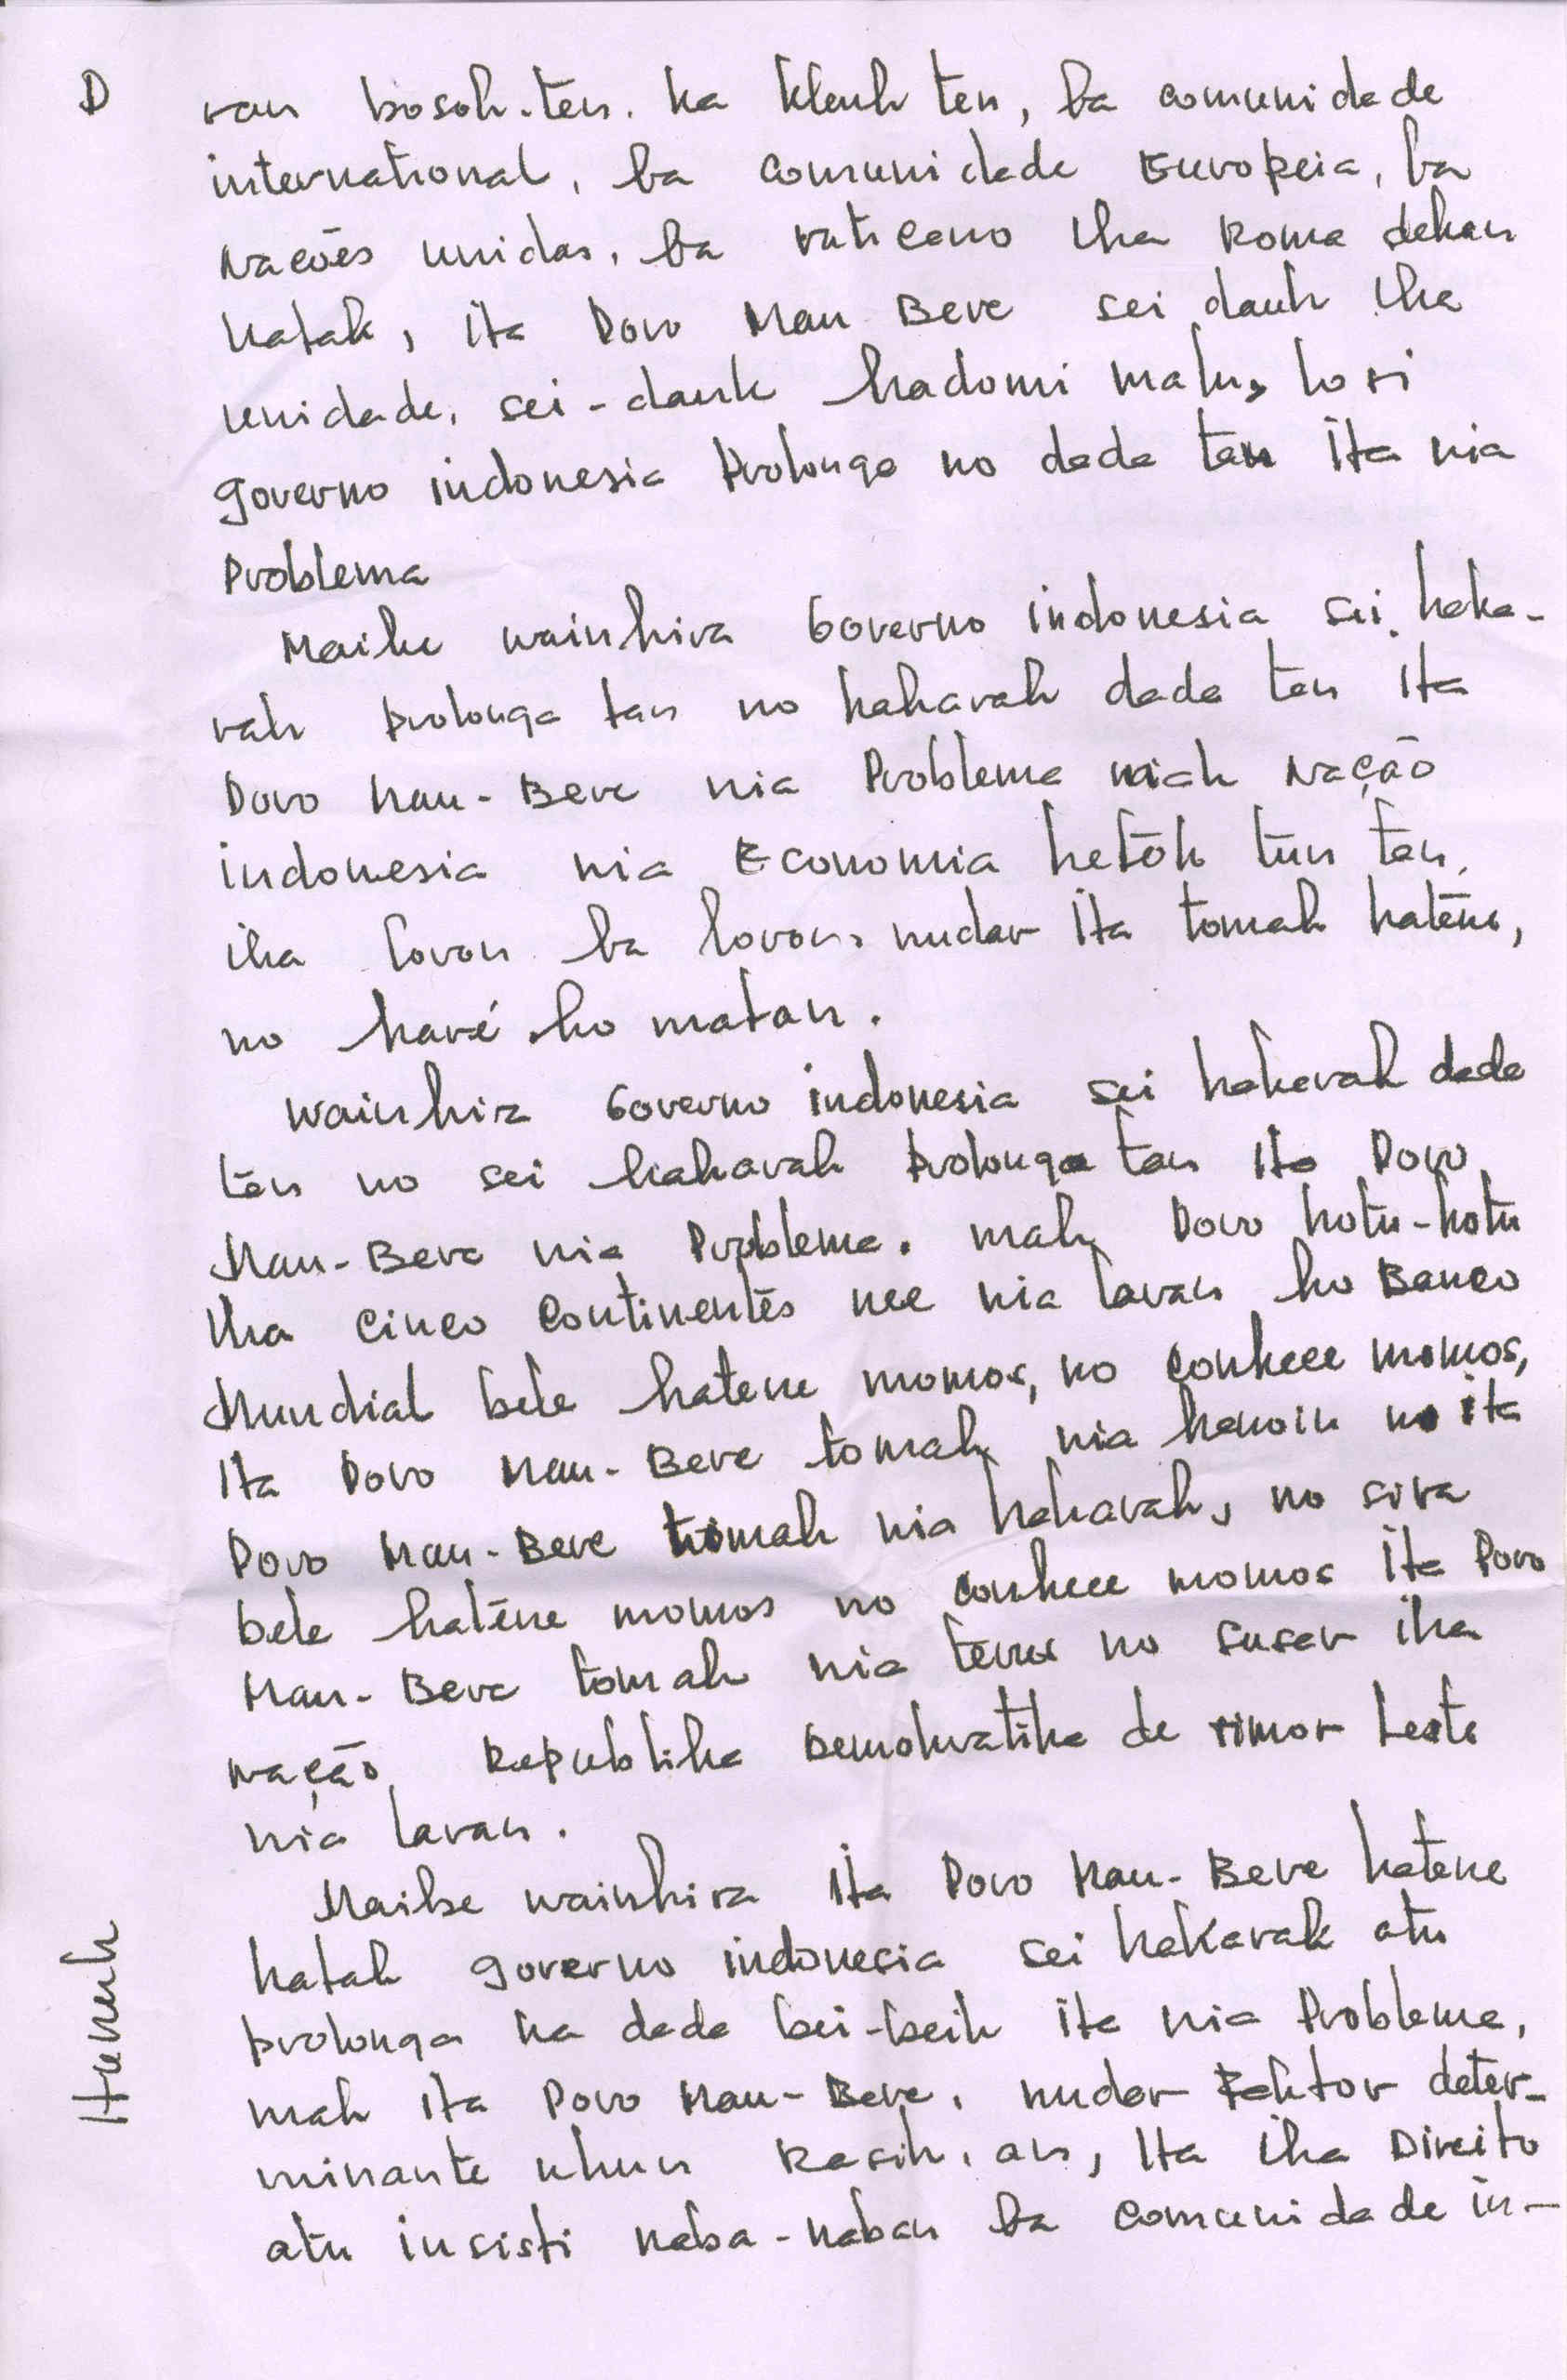 D
ran bosok-tan. ka kleuk tan, ba comunidade
international, ba comunidade Europeia, ba
Nacões unidas, ba vaticano iha Roma dehan
katak, ita Povo Mau Bere sei dauk iha
unidade, sei-dauk hadomi malu, hosi
governo indonesia Prolonga no dada tan ita nia
Problema
Maibe wainhira Governo indonesia sei haka-
rak prolonga tan no hakarak dada tan ita
Povo Mau-Bere nia Problema mak Nação
indonesia nia Economia hetók tún tan,
iha loron ba loron, nudar ita tomak haténe,
no haré ho matan.
Wainhira Governo indonesia sei hakarak dada
tan no sei hakarak prolonga tan ita Povo
Mau-Bere nia Problema. mak Povo hotu-hotu
iha cinco continentés nee nia laran ho Banco
Mundial bele hatene momos, no conhece momos,
ita Povo Mau-Bere tomak nia hanoin no ita
Povo Mau-Bere tomak nia hakarak, no sira
bele haténe momos no conhece momos ita Povo
Mau-Bere tomak nia terus no susar iha
nação, Republika Demokratika de Timor Leste
nia laran.
Maibe wainhira ita Povo Mau-Bere hatene
katak governo indonesia sei hakarak atu
prolonga ka dada bei-beik ita nia Problema,
mak ita Povo Mau-Bere, nudar Faktor deter-
minante ukun Rasik, an, ita iha Direito
atu insisti naba-naban ba comunidade in-
Hanuk